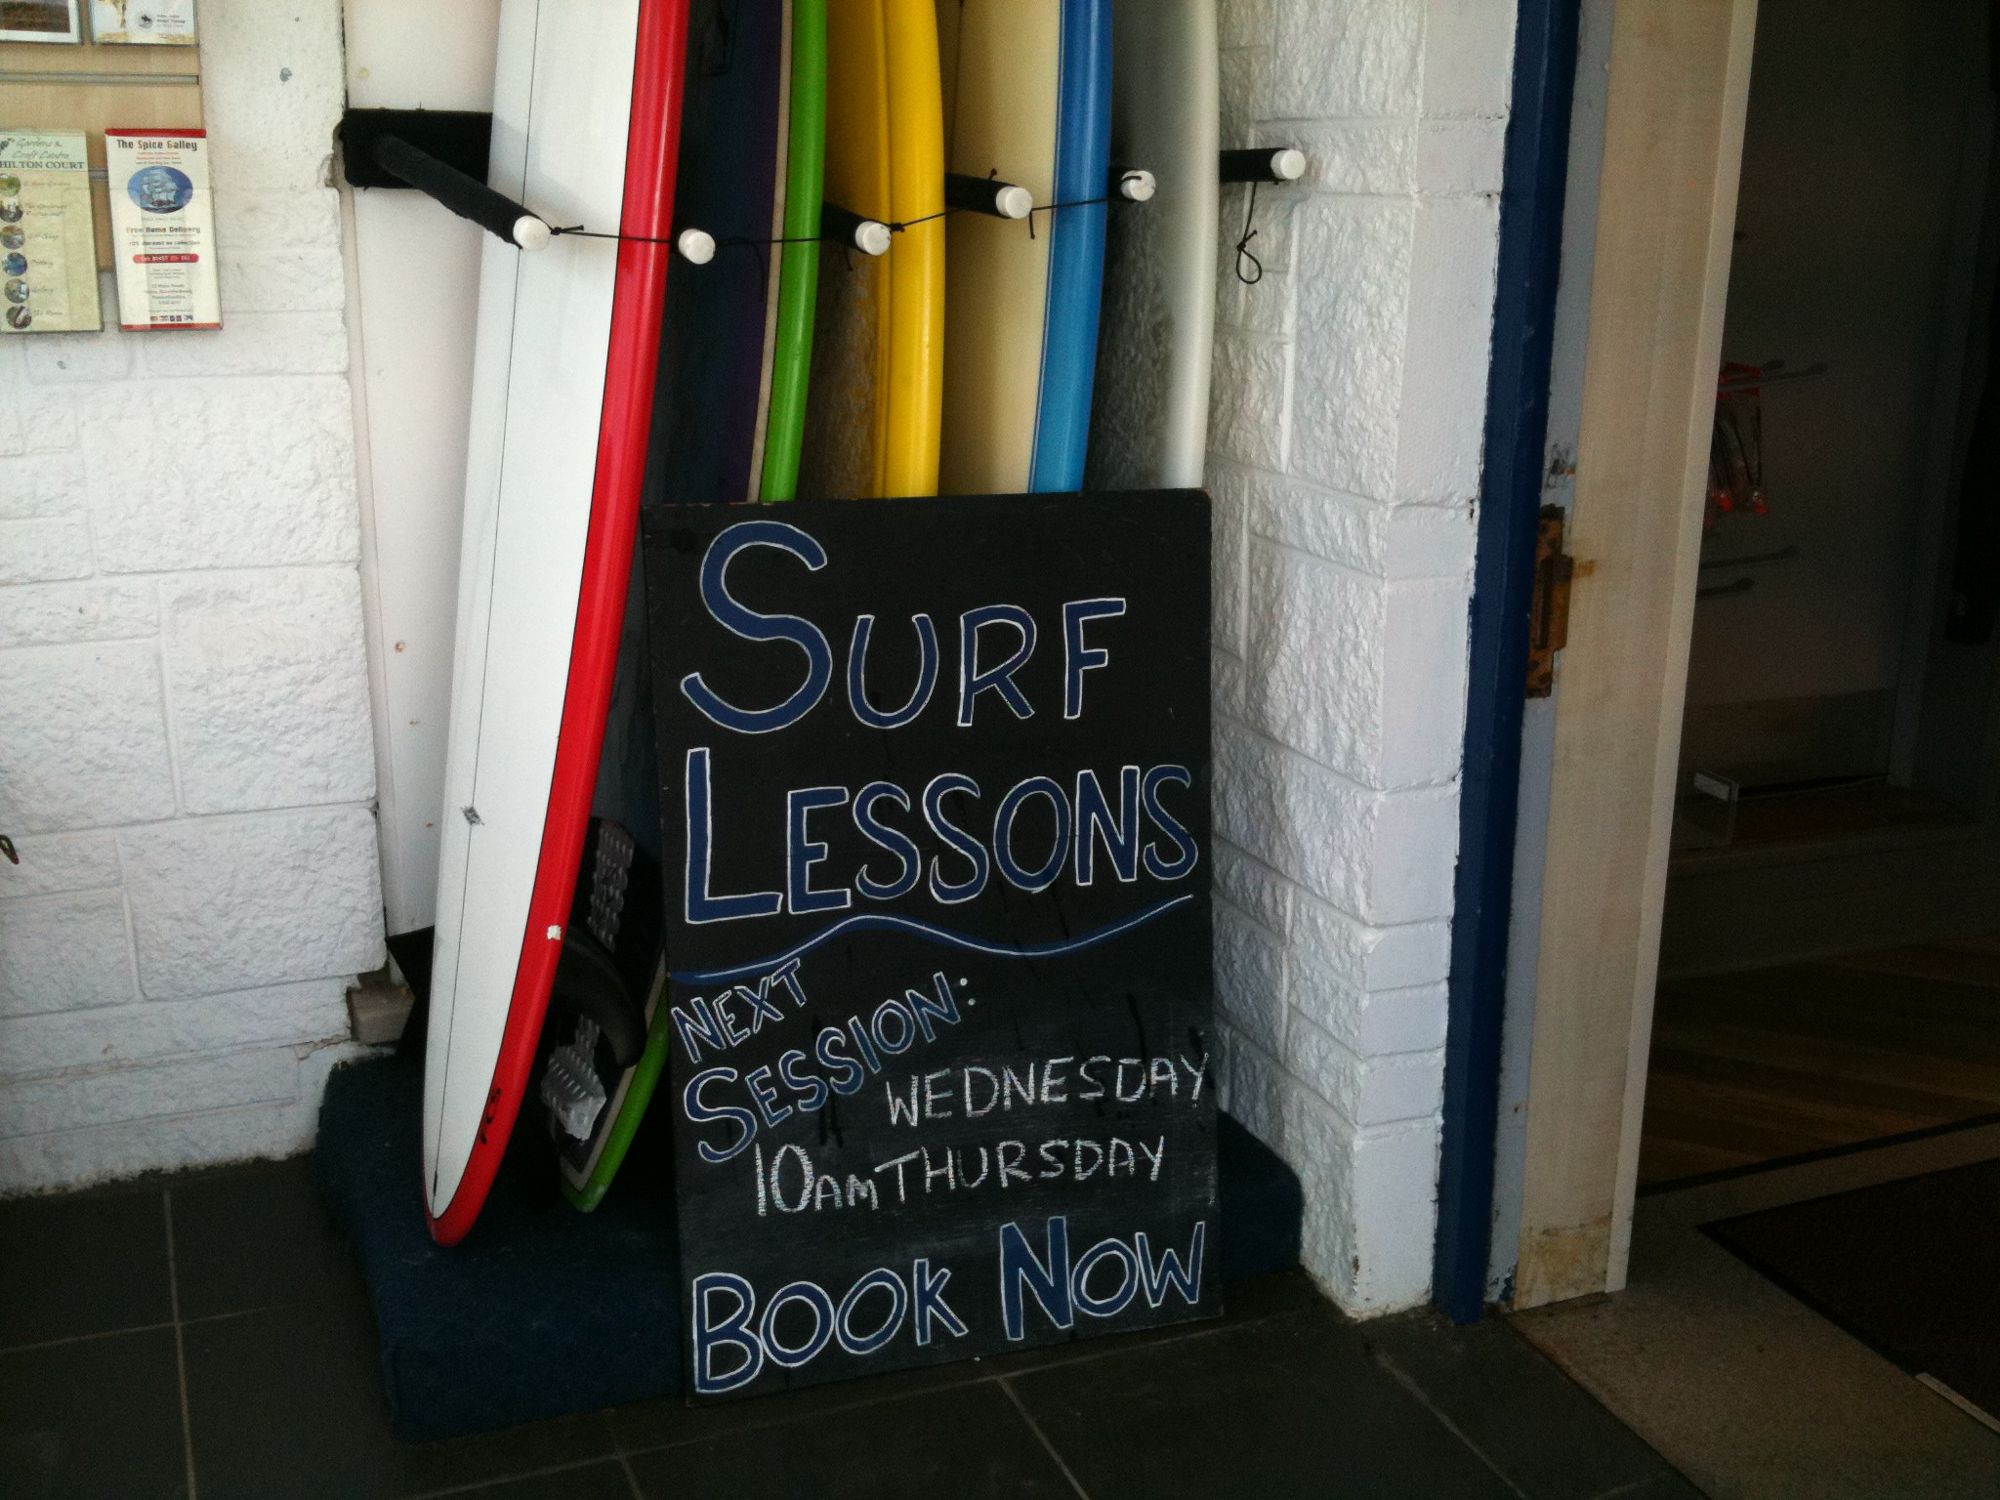 Gardens &
Craft Centre
HILTON COURT
The Spice Galley
Free Home Delivery
10% discount on collection
SURF
LESSONS
NEXT
SESSION:
WEDNESDAY
10AM THURSDAY
BOOK NOW